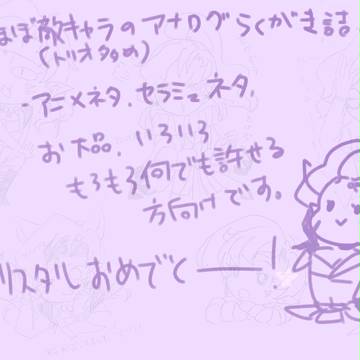 ほぼ敵キャラのアナログらくがき詰
(トリオ多め)
・アニメネタ、セラミュネタ、
お大品、いろいろ
もろもろ何でも許せる
方向けです。
リスタルおめでとーー!